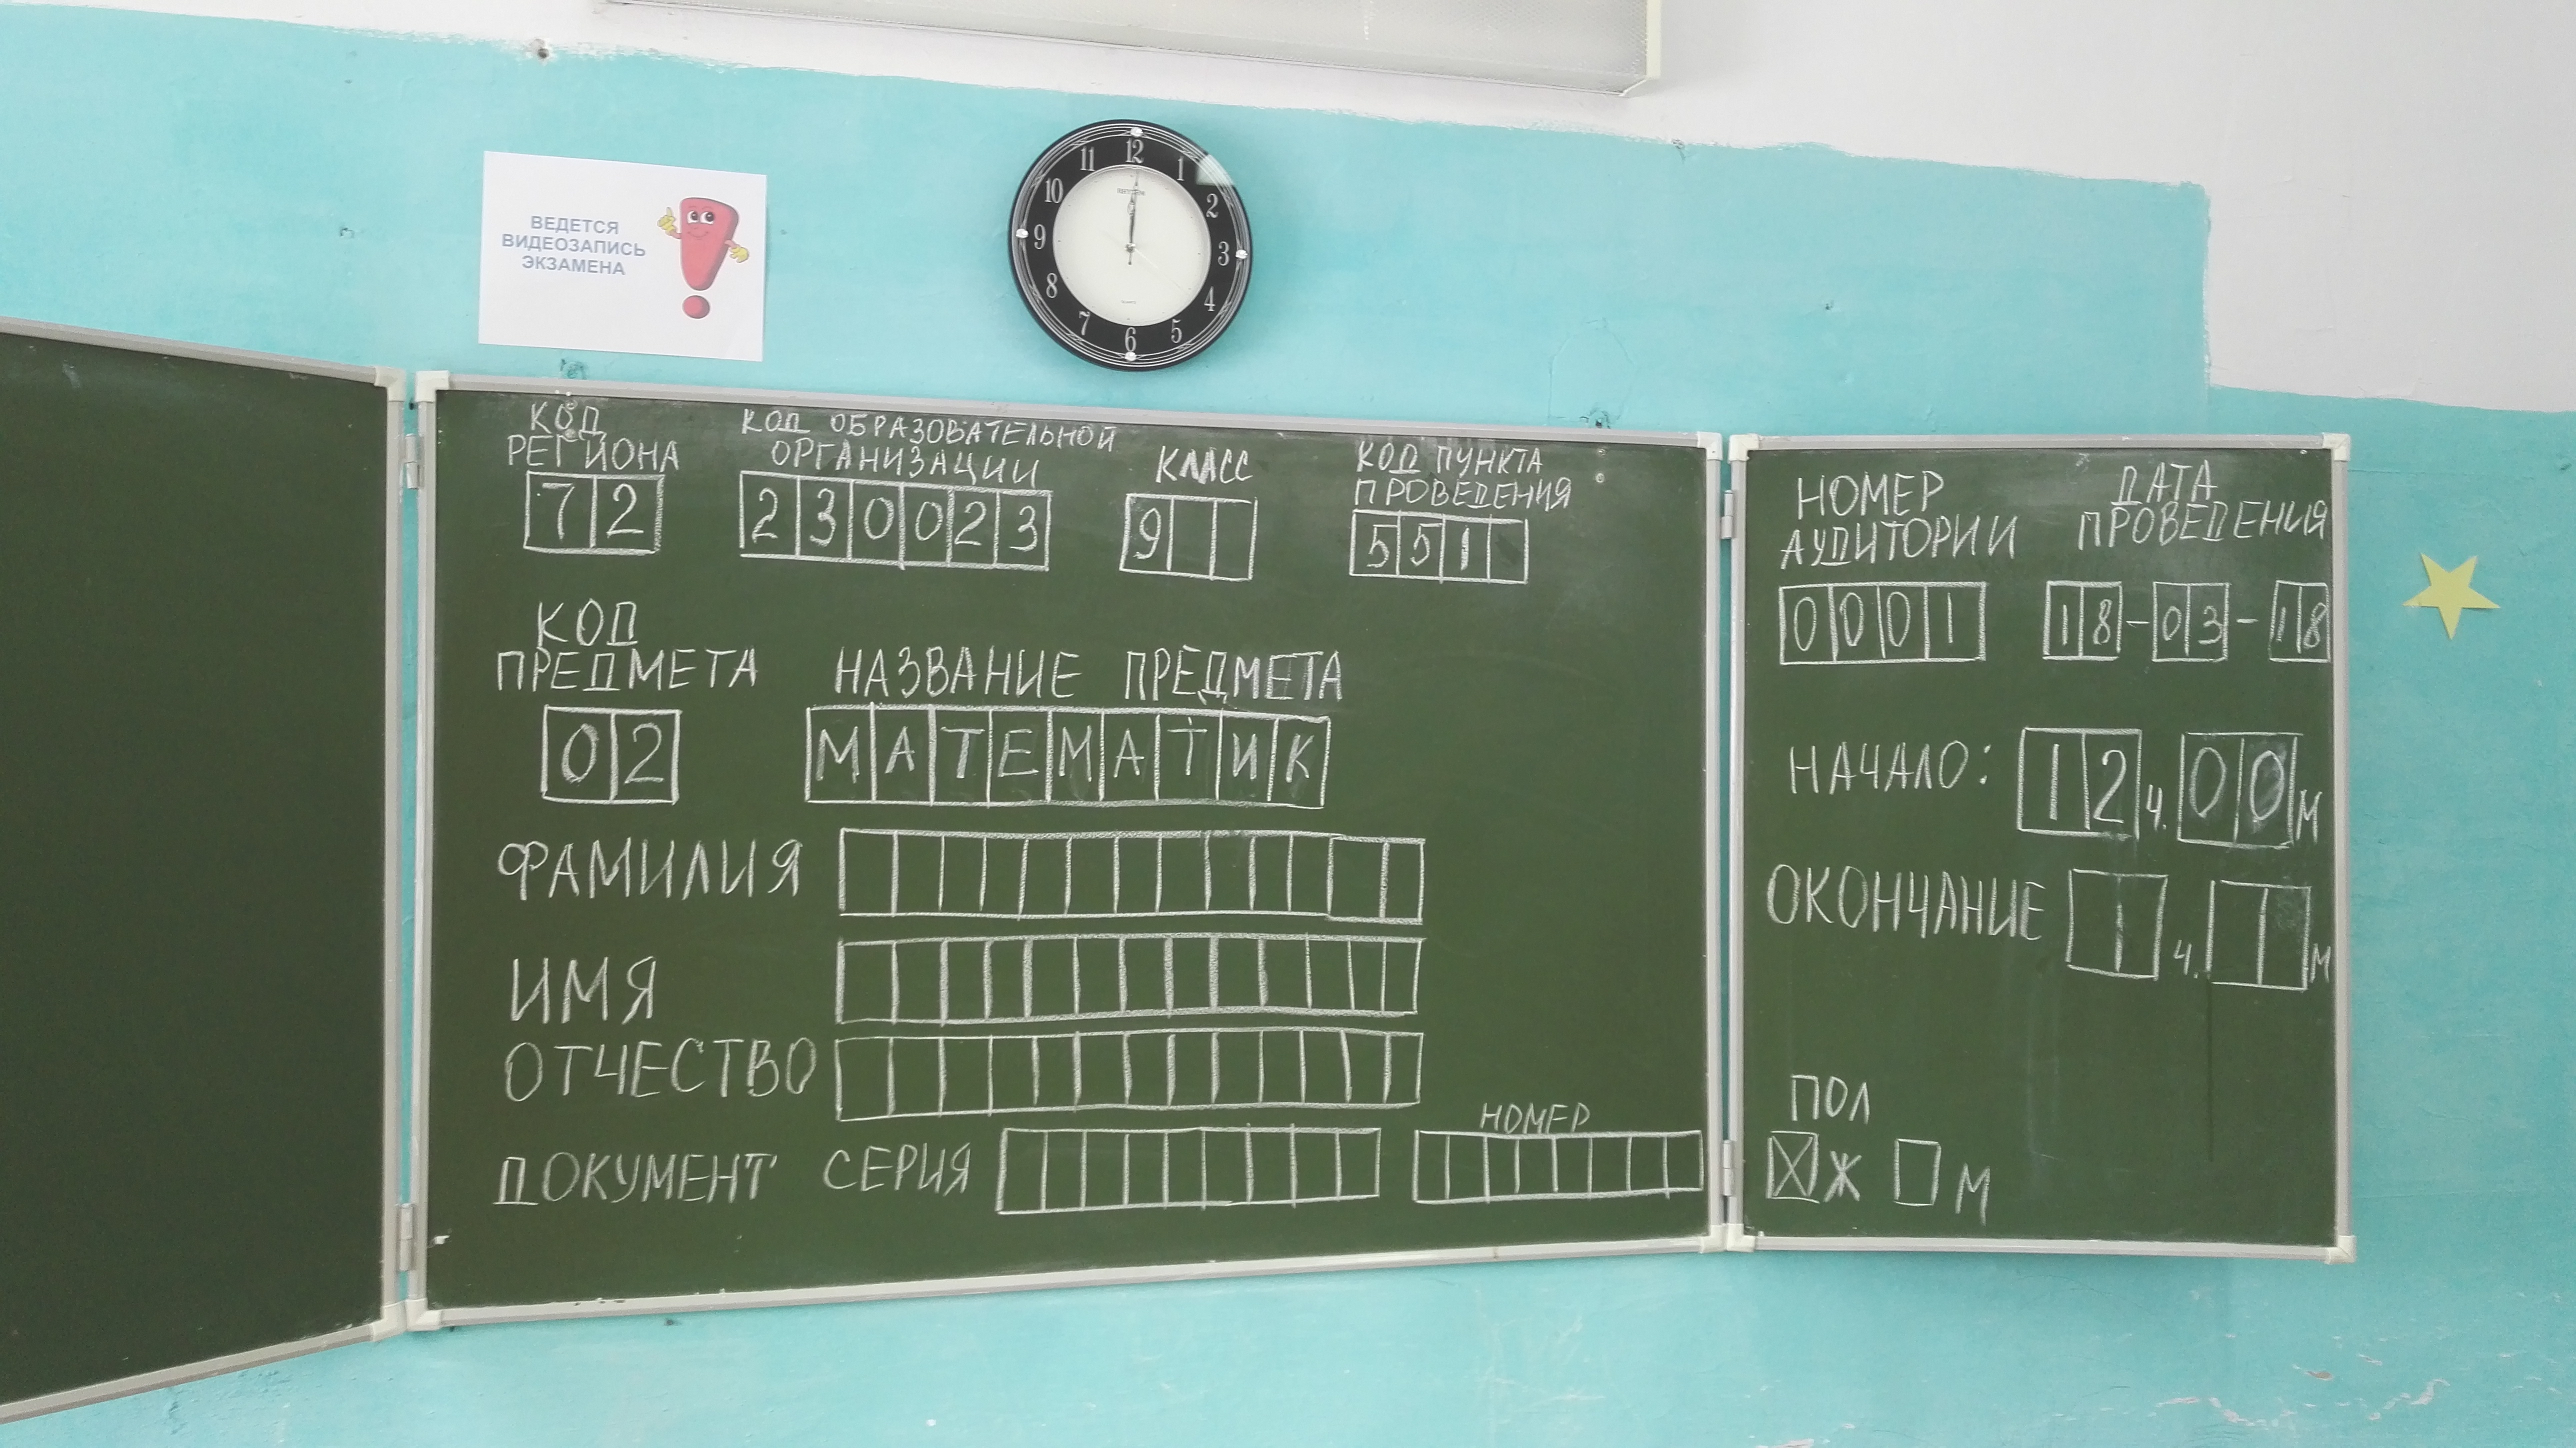 ВЕДЕТСЯ
ВИДЕОЗАПИСЬ
ЭКЗАМЕНА
11 12 1
10 2
9 3
8 4
7 6 5
КОД
РЕГИОНА
72
КОД ОБРАЗОВАТЕЛЬНОЙ
ОРГАНИЗАЦИИ
230023
КЛАСС
9
КОД ПУНКТА
ПРОВЕДЕНИЯ
551
КОД
ПРЕДМЕТА
02
НАЗВАНИЕ ПРЕДМЕТА
МАТЕМАТИК
ФАМИЛИЯ
ИМЯ
ОТЧЕСТВО
ДОКУМЕНТ СЕРИЯ
НОМЕР
НОМЕР
АУДИТОРИИ
0001
ДАТА
ПРОВЕДЕНИЯ
18-03-18
НАЧАЛО: 12 ч. 00 м
ОКОНЧАНИЕ ч. м
ПОЛ
Ж М